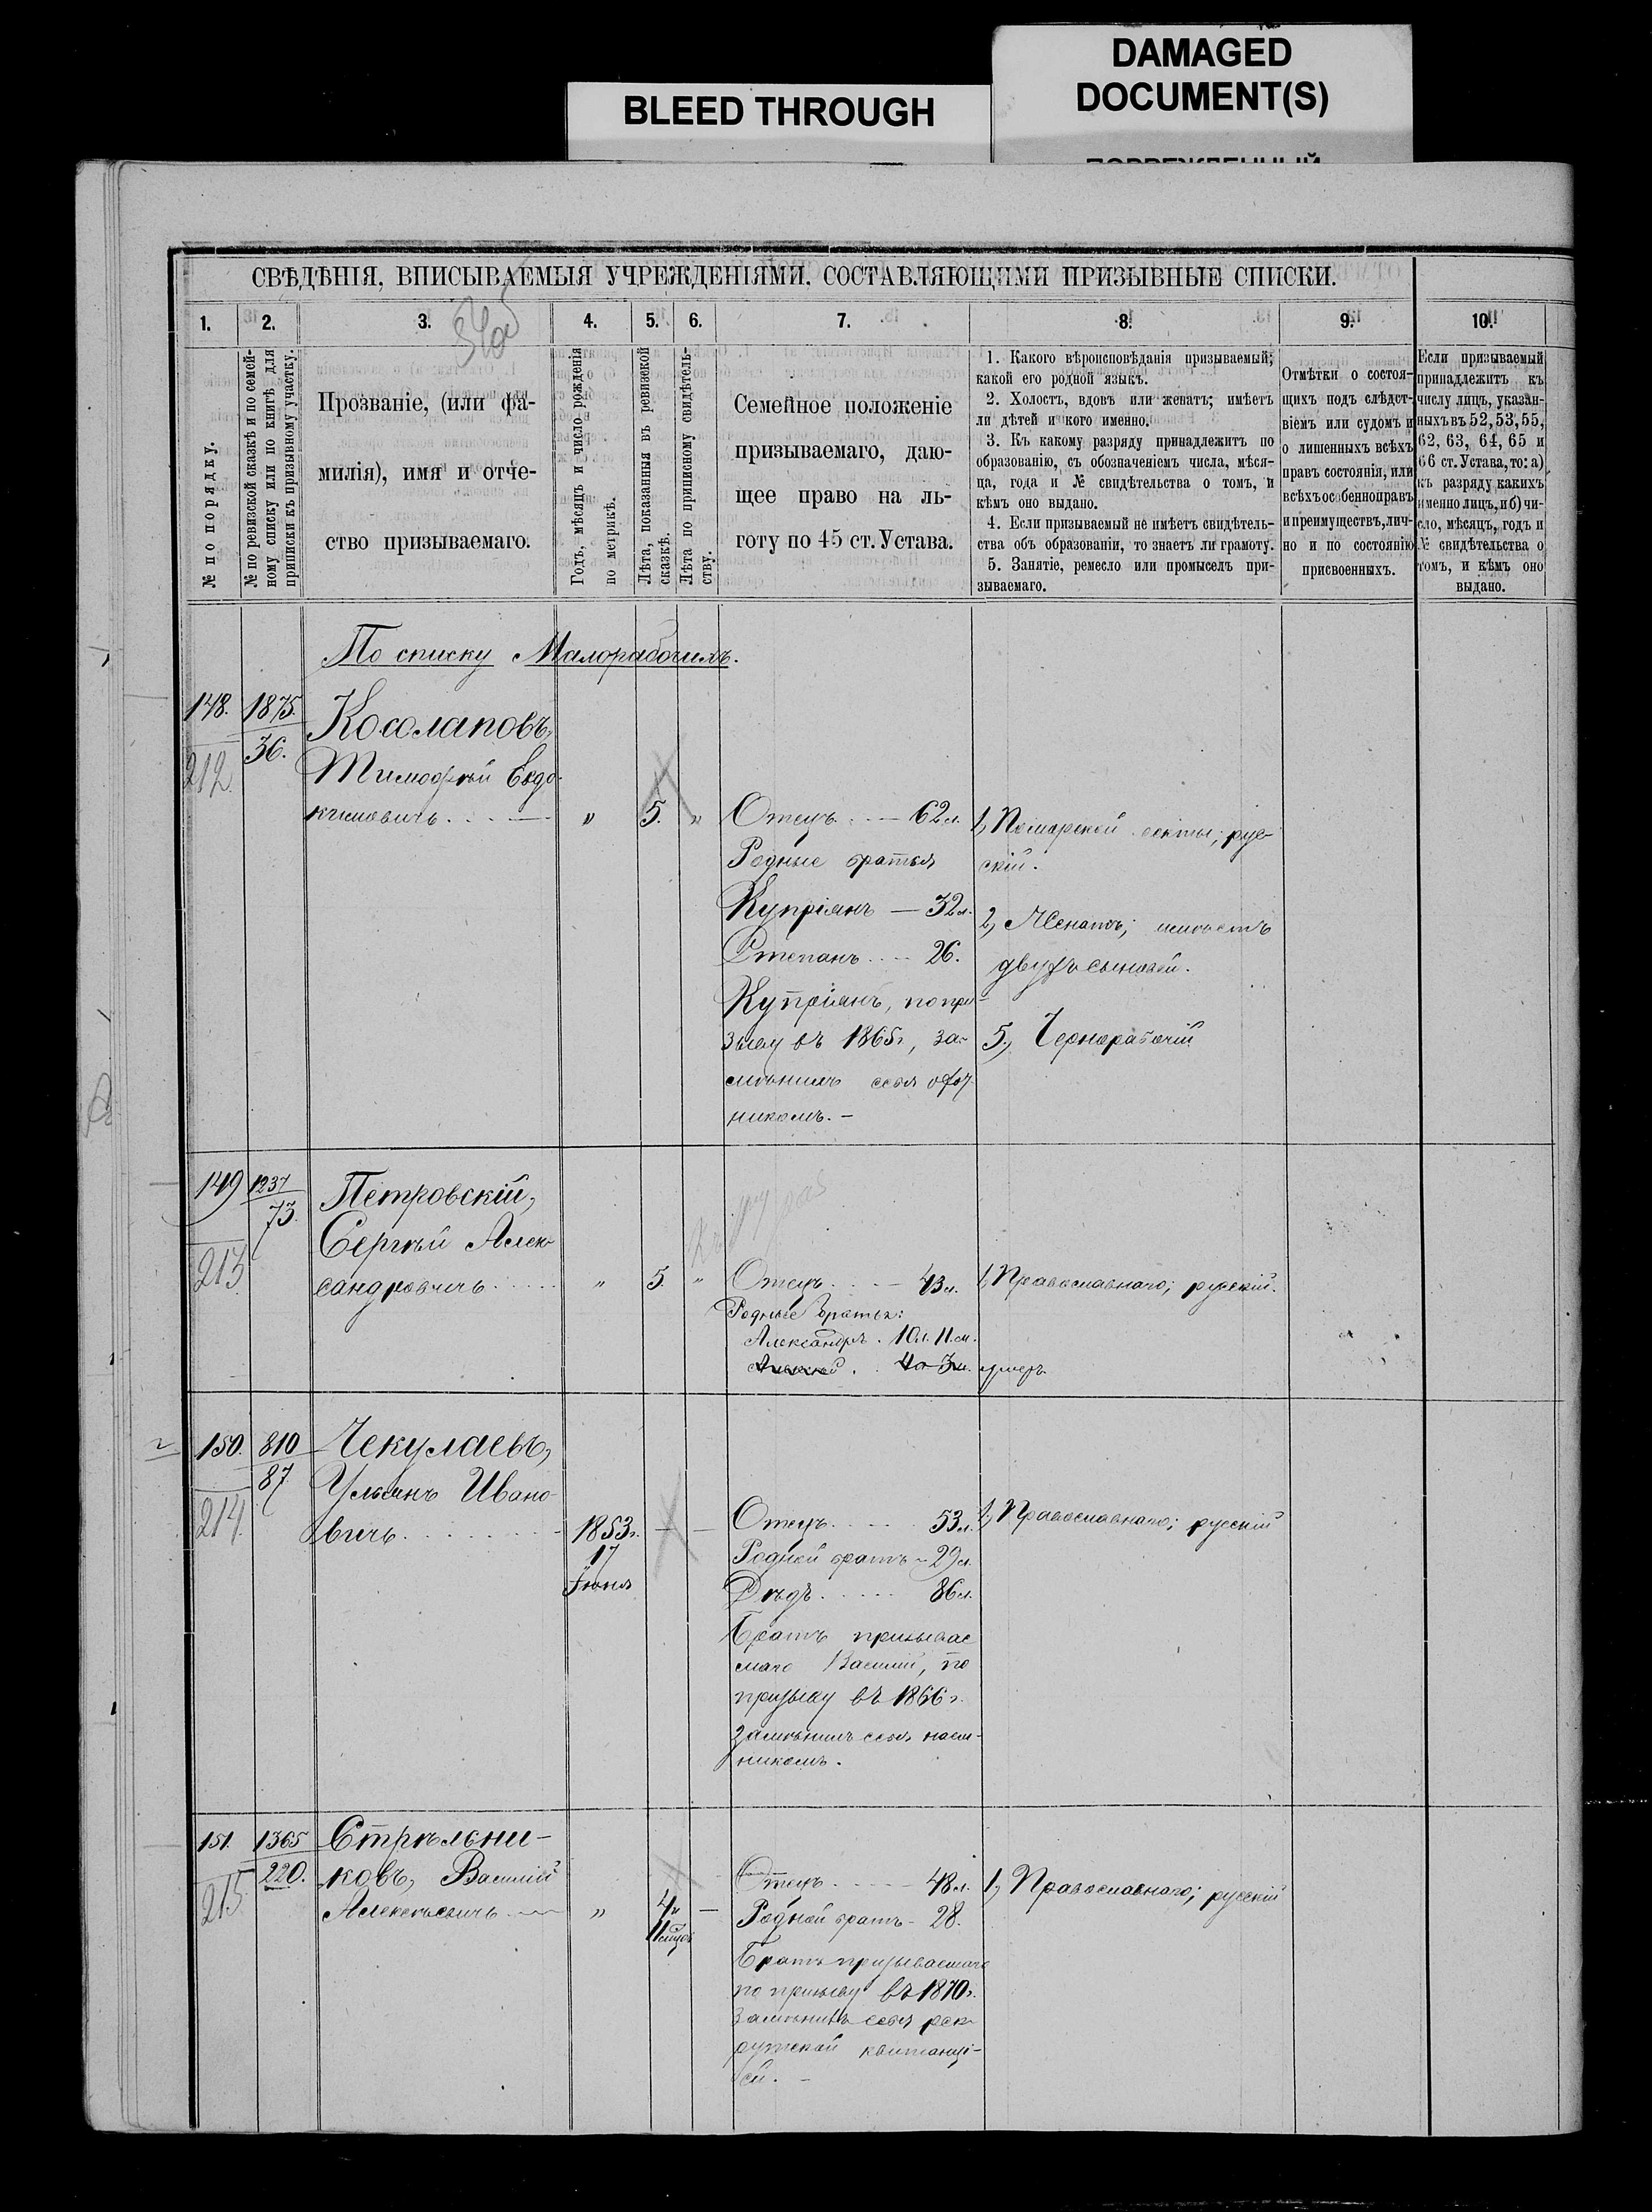 DAMAGED
DOCUMENT(S)
BLEED THROUGH
СВѢДѢНІЯ, ВПИСЫВАЕМЫЯ УЧРЕЖДЕНІЯМИ, СОСТАВЛЯЮЩИМИ ПРИЗЫВНЫЕ СПИСКИ.
1. 2. 3. 4. 5. 6. 7. 8. 9. 10.
№ по порядку.
№ по ревизской сказкѣ и по семей-
ному списку или по книгѣ для
приписки къ призывному участку.
Прозваніе, (или фа-
милія), имя и отче-
ство призываемаго.
Годъ, мѣсяцъ и число рожденія
по метрикѣ.
Лѣта, показанныя въ ревизской
сказкѣ.
Лѣта по приписному свидѣтель-
ству.
Семейное положеніе
призываемаго, даю-
щее право на ль-
готу по 45 ст. Устава.
1. Какого вѣроисповѣданія призываемый;
какой его родной языкъ.
2. Холостъ, вдовъ или женатъ; имѣетъ
ли дѣтей и кого именно.
3. Къ какому разряду принадлежитъ по
образованію, съ обозначеніемъ числа, мѣся-
ца, года и № свидѣтельства о томъ, и
кѣмъ оно выдано.
4. Если призываемый не имѣетъ свидѣтель-
ства объ образованіи, то знаетъ ли грамоту.
5. Занятіе, ремесло или промыселъ при-
зываемаго.
Отмѣтки о состоя-
щихъ подъ слѣдст-
віемъ или судомъ и
о лишенныхъ всѣхъ
правъ состоянія, или
всѣхъ особенно правъ
и преимуществъ, лич-
но и по состоянію
присвоенныхъ.
Если призываемый
принадлежитъ къ
числу лицъ, указан-
ныхъ въ 52, 53, 55,
62, 63, 64, 65 и
66 ст. Устава, то: а)
къ разряду какихъ
именно лицъ, и б) чи-
сло, мѣсяцъ, годъ и
№ свидѣтельства о
томъ, и кѣмъ оно
выдано.
По списку
148. 1875.
36.
212
Косолаповъ,
Тимофей Евдо-
кимовичъ
" 5. "
Отецъ 62 л.
Родные братья
Купріянъ — 32 л.
Степанъ 26.
Купріянъ, по при-
зыву въ 1865 г, за-
мѣнилъ себя
никомъ. –
1, Поморской секты; рус-
скій.
2, Женатъ; имѣетъ
двухъ сыновей.
5, Чернорабочій
149 1237
73.
213
Петровскій,
Сергѣй Алек-
сандровичъ
" 5. "
Отецъ 43 л.
Родные братья:
Александръ. 10 л. 11. м.
умеръ.
1, Православнаго; русскій.
150. 810
87
214
Чекулаевъ,
Ульянъ Ивано-
вичъ
1853 г.
17
Іюня
Отецъ 53 л.
Родной братъ – 29 л.
Дѣдъ 86 л.
Братъ призывае
маго Василій, по
призыву въ 1866 г.
замѣнилъ себя наем-
никомъ.
1, Православнаго; русскій
151. 1365
220.
215
Стрѣльни-
ковъ, Василій
Алексѣевичъ
" 4 г
11 мѣсцв –
Отецъ 48 л.
Родной братъ – 28.
Братъ призываемаго
по призыву въ 1870 г.
замѣнилъ себя рек-
рутской квитанці-
ей. –
1, Православнаго; русскій